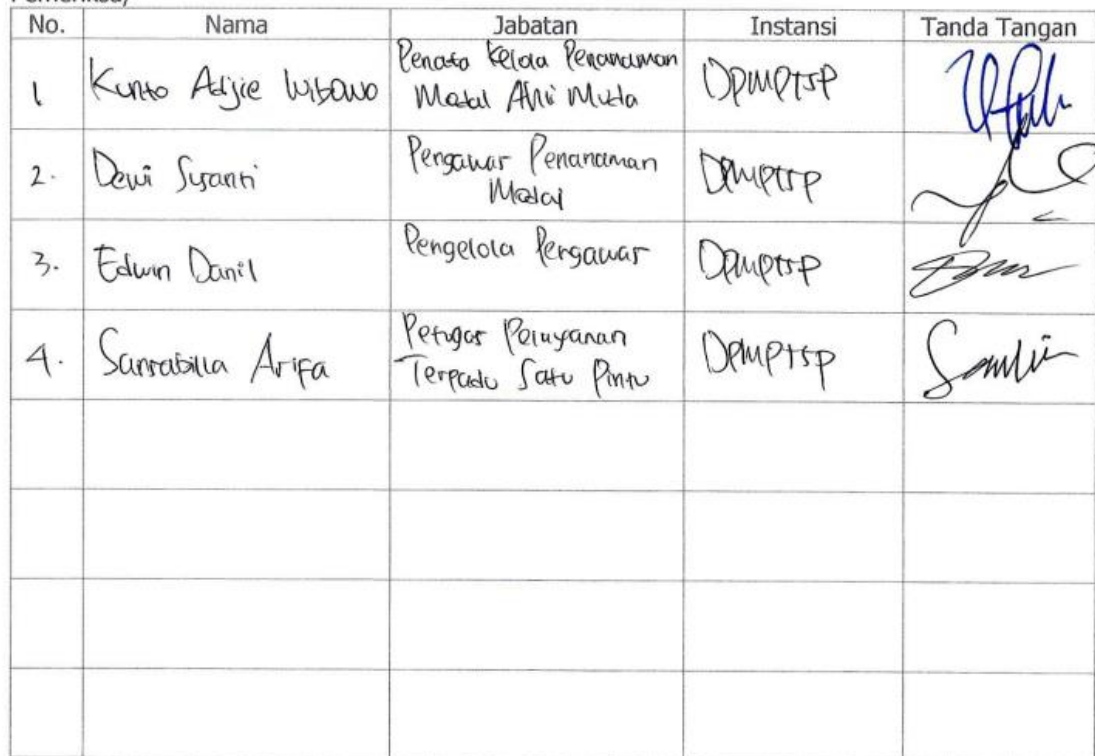 No. Nama Jabatan Instansi Tanda Tangan
1 Kunto Adjie Wibowo Penata Kelola Penanaman DPMPTSP
Modal Ahli Muda
2. Dewi Susanti Pengawas Penanaman DPMPTSP
Modal
3. Edwin Danil Pengelola Pengawas DPMPTSP
4. Sansabilla Arifa Petugas Pelayanan DPMPTSP
Terpadu Satu Pintu